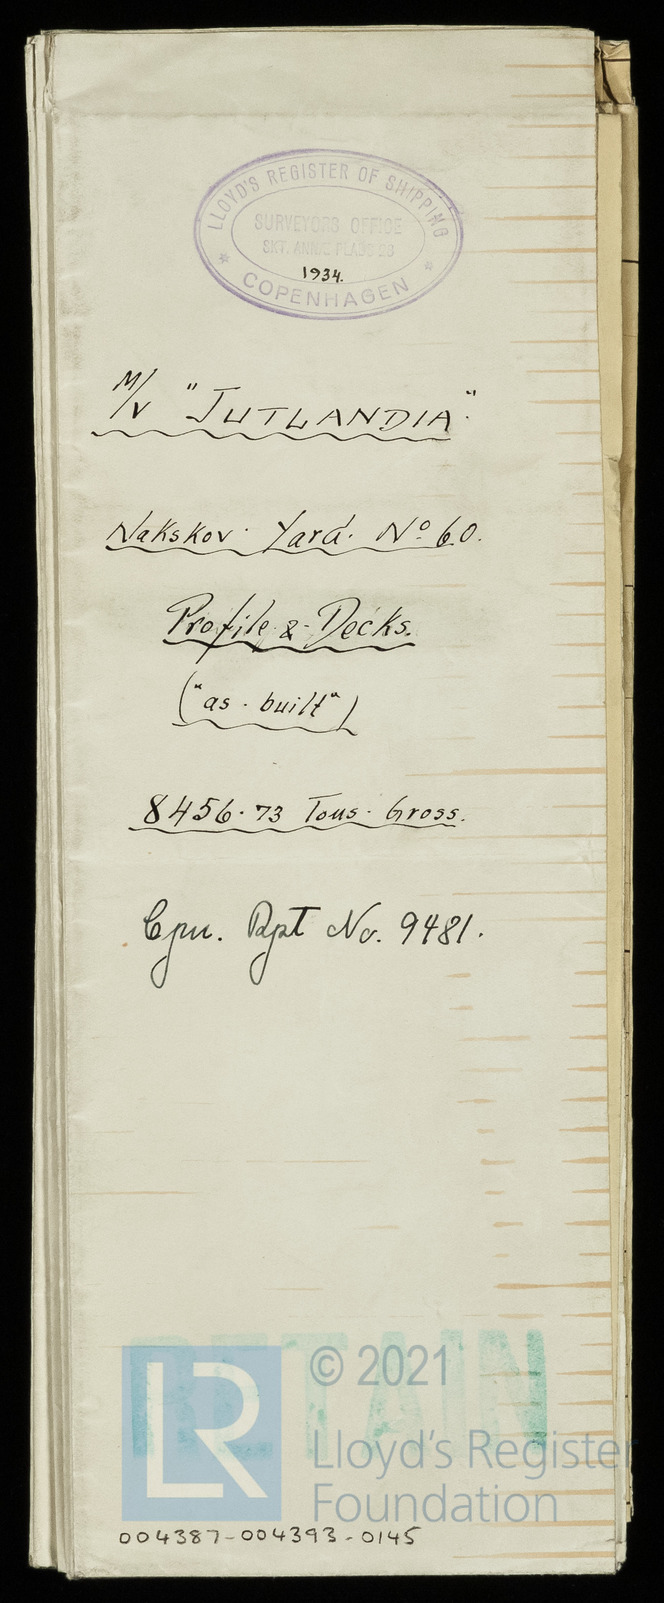 LLOYD'S REGISTER OF SHIPPING
SURVEYORS OFFICE
SKT. ANNÆ PLADS 26
1934.
COPENHAGEN
M/V "JUTLANDIA".
Nakskov Yard. Nº 60.
Profile & Decks.
("as built")
8456.73 Tons Gross.
Cpn. Rpt No. 9481.
RETAIN
LR
© 2021
Lloyd's Register
Foundation
004387-004393-0145